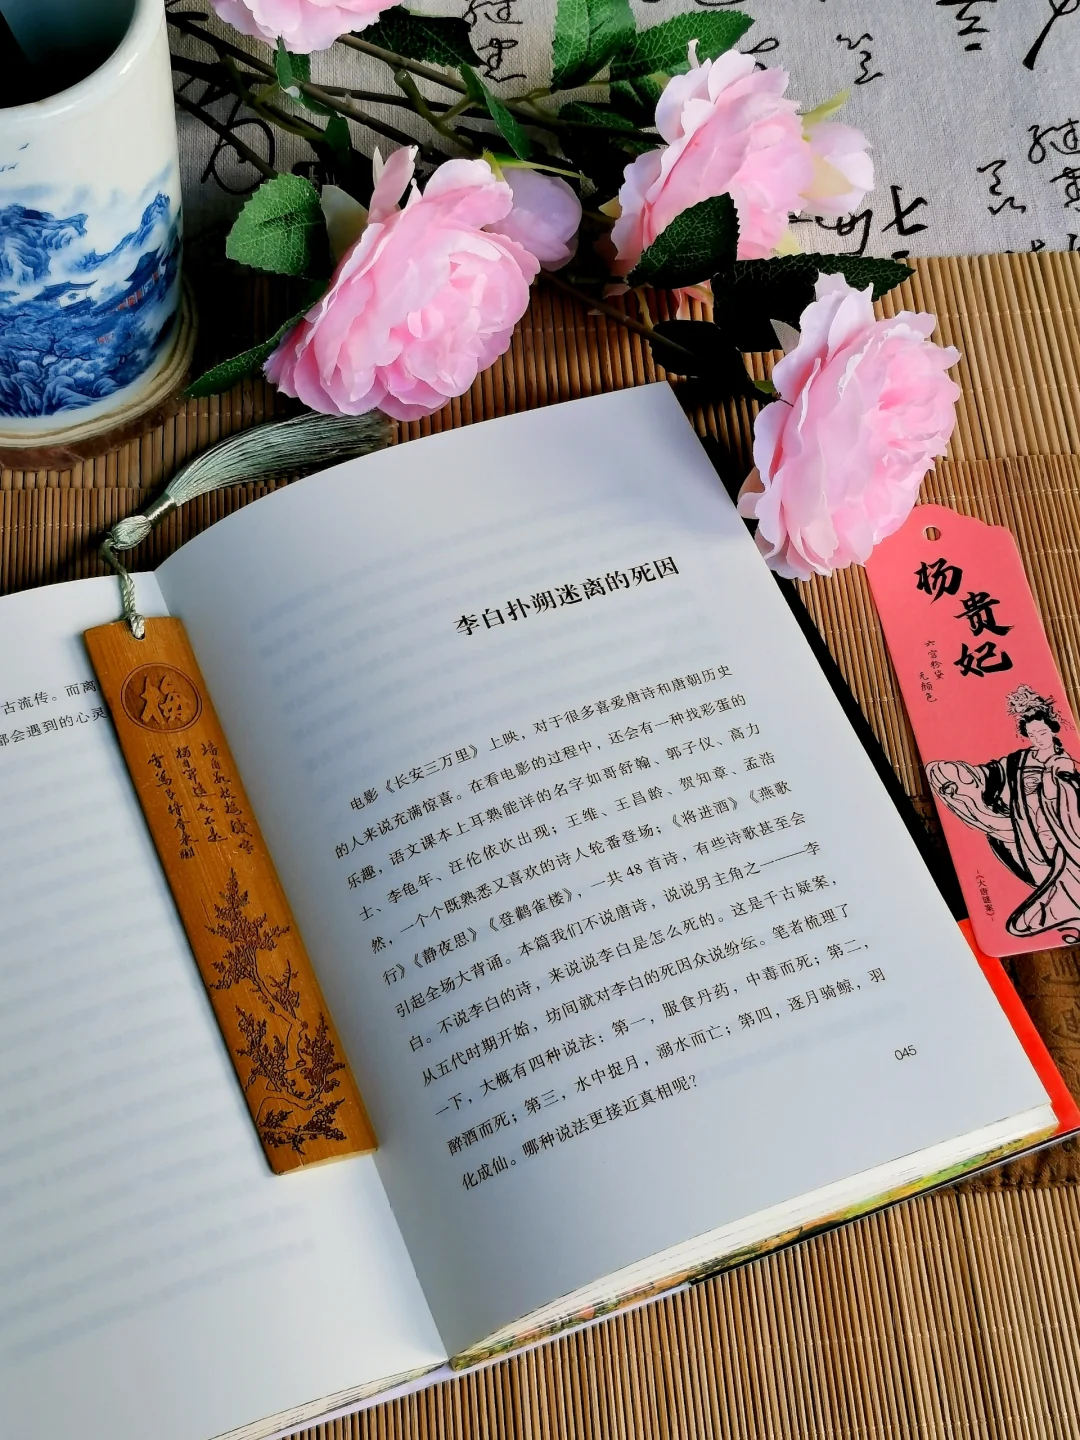 古流传。而离
都会遇到的心灵
梅
李白扑朔迷离的死因
电影《长安三万里》上映，对于很多喜爱唐诗和唐朝历史
的人来说充满惊喜。在看电影的过程中，还会有一种找彩蛋的
乐趣，语文课本上耳熟能详的名字如哥舒翰、郭子仪、高力
士、李龟年、汪伦依次出现；王维、王昌龄、贺知章、孟浩
然，一个个既熟悉又喜欢的诗人轮番登场；《将进酒》《燕歌
行》《静夜思》《登鹳雀楼》，一共48首诗，有些诗歌甚至会
引起全场大背诵。本篇我们不说唐诗，说说男主角之一——李
白。不说李白的诗，来说说李白是怎么死的。这是千古疑案，
从五代时期开始，坊间就对李白的死因众说纷纭。笔者梳理了
一下，大概有四种说法：第一，服食丹药，中毒而死；第二，
醉酒而死；第三，水中捉月，溺水而亡；第四，逐月骑鲸，羽
化成仙。哪种说法更接近真相呢？
045
杨贵妃
六宫粉黛
无颜色
《大唐谜案》